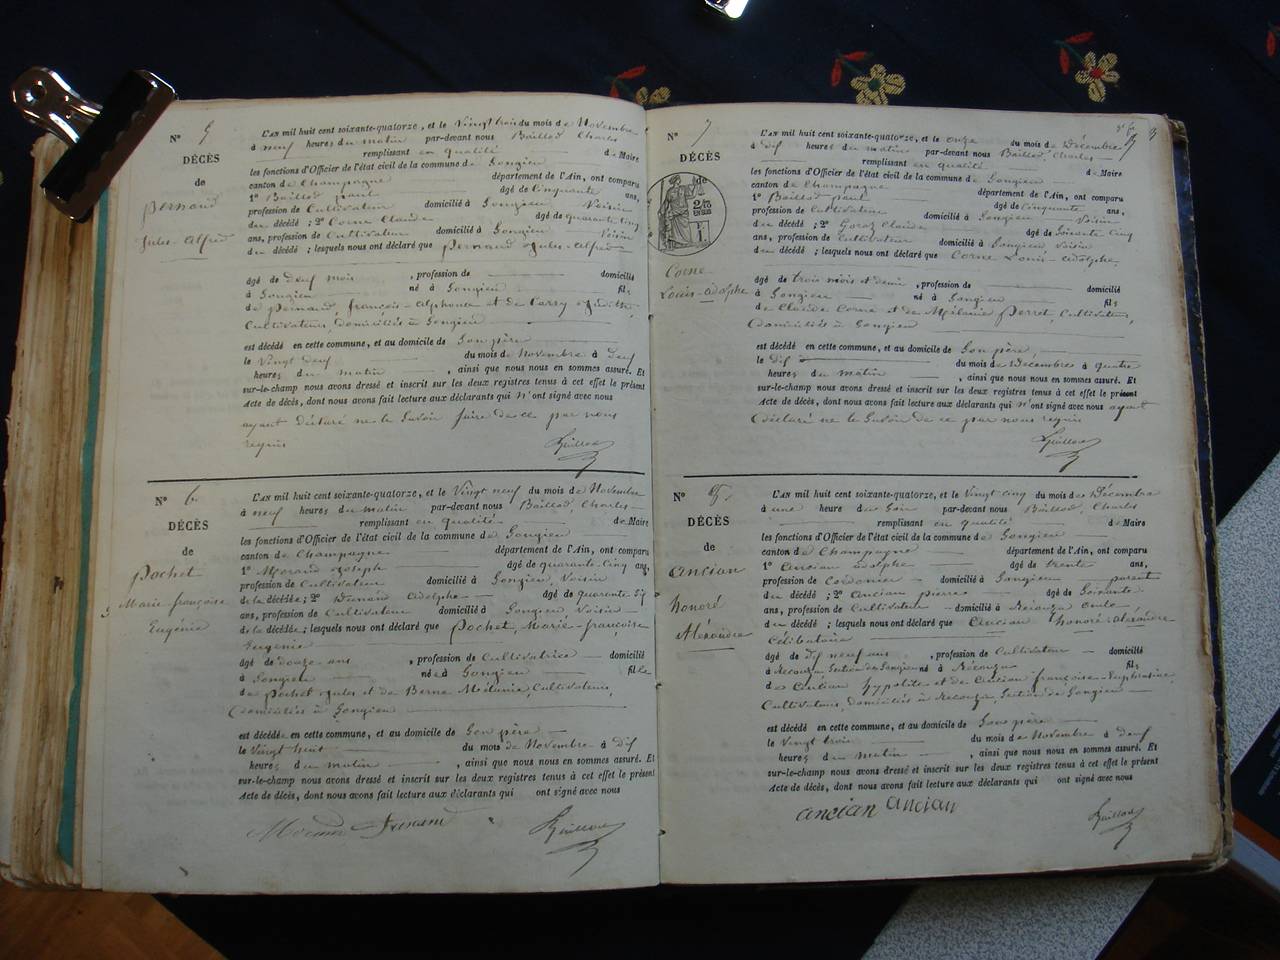 N° 5
DÉCÈS
de
Pernaud
Jules-Alfred
L'AN mil huit cent soixante-quatorze, et le Vingt trois du mois de Novembre
à neuf heures du matin par-devant nous Baillod Charles
remplissant en qualité de Maire
les fonctions d'Officier de l'état civil de la commune de Songieu
canton de Champagne département de l'Ain, ont comparu
1° Baillod paul âgé de Cinquante ans,
profession de Cultivateur domicilié à Songieu Voisin
du décédé ; 2° Corne Claude âgé de quarante cinq
ans, profession de Cultivateur domicilié à Songieu Voisin
du décédé ; lesquels nous ont déclaré que Pernaud Jules-Alfred
âgé de neuf mois , profession de domicilié
à Songieu né à Songieu fils
de Pernaud, françois-Alphonse et de
Cultivateurs, domiciliés à Songieu
est décédé en cette commune, et au domicile de Son père
le Vingt deux du mois de Novembre à
heures du matin , ainsi que nous nous en sommes assuré. Et
sur-le-champ nous avons dressé et inscrit sur les deux registres tenus à cet effet le présent
Acte de décès, dont nous avons fait lecture aux déclarants qui n'ont signé avec nous
ayant déclaré ne le Savoir faire de ce par nous
requis
N° 6
DÉCÈS
de
Pochet
Marie françoise
Eugénie
L'AN mil huit cent soixante-quatorze, et le Vingt neuf du mois de Novembre
à neuf heures du matin par-devant nous Baillod, Charles
remplissant en qualité de Maire
les fonctions d'Officier de l'état civil de la commune de Songieu
canton de Champagne département de l'Ain, ont comparu
1° Morand Joseph âgé de quarante-Cinq ans,
profession de Cultivateur domicilié à Songieu, Voisin
de la décédée ; 2° Adolphe âgé de quarante Six
ans, profession de Cultivateur domicilié à Songieu Voisin
de la décédée ; lesquels nous ont déclaré que Pochet, Marie-françoise
Eugénie
âgé de douze ans , profession de Cultivatrice domicilié
à Songieu née à Songieu fille
de Pochet Jules et de Berne Mélanie, Cultivateurs,
domiciliés à Songieu
est décédée en cette commune, et au domicile de Son père
le Vingt huit du mois de Novembre à Dix
heures du matin , ainsi que nous nous en sommes assuré. Et
sur-le-champ nous avons dressé et inscrit sur les deux registres tenus à cet effet le présent
Acte de décès, dont nous avons fait lecture aux déclarants qui ont signé avec nous
N° 7
DÉCÈS
de
Corne
Louis-Adolphe
L'AN mil huit cent soixante-quatorze, et le onze du mois de Décembre
à Dix heures du matin par-devant nous Baillod, Charles
remplissant en qualité de Maire
les fonctions d'Officier de l'état civil de la commune de Songieu
canton de Champagne département de l'Ain, ont comparu
1° Baillod paul âgé de Cinquante ans,
profession de Cultivateur domicilié à Songieu Voisin
du décédé ; 2° Claude âgé de Soixante Cinq
ans, profession de Cultivateur domicilié à Songieu, Voisin
du décédé ; lesquels nous ont déclaré que Corne Louis-Adolphe,
âgé de trois mois et demi , profession de domicilié
à Songieu né à Songieu fils
de Claude Corne et de Mélanie Perret, Cultivateurs,
domiciliés à Songieu
est décédé en cette commune, et au domicile de Son père,
le Dix du mois de Décembre à quatre
heures du matin , ainsi que nous nous en sommes assuré. Et
sur-le-champ nous avons dressé et inscrit sur les deux registres tenus à cet effet le présent
Acte de décès, dont nous avons fait lecture aux déclarants qui n'ont signé avec nous ayant
déclaré ne le Savoir de ce par nous requis
N° 8
DÉCÈS
de
Ancian
honoré
Alexandre
L'AN mil huit cent soixante-quatorze, et le Vingt cinq du mois de Décembre
à une heure du Soir par-devant nous Baillod, Charles
remplissant en qualité de Maire
les fonctions d'Officier de l'état civil de la commune de Songieu
canton de Champagne département de l'Ain, ont comparu
1° Ancian adolphe âgé de trente ans,
profession de Cordonier domicilié à Songieu parent
du décédé ; 2° Ancian pierre âgé de Soixante
ans, profession de Cultivateur domicilié à oncle
du décédé ; lesquels nous ont déclaré que Ancian honoré-Alexandre
Célibataire
âgé de Dix neuf ans , profession de Cultivateur domicilié
à Section de Songieu né à fils
de Ancian hypolite et de Ancian françoise-Euphrasine
Cultivateurs, domiciliés à Section de Songieu
est décédé en cette commune, et au domicile de Son père
le Vingt trois du mois de Novembre à
heures du matin , ainsi que nous nous en sommes assuré. Et
sur-le-champ nous avons dressé et inscrit sur les deux registres tenus à cet effet le présent
Acte de décès, dont nous avons fait lecture aux déclarants qui ont signé avec nous
ancian ancian